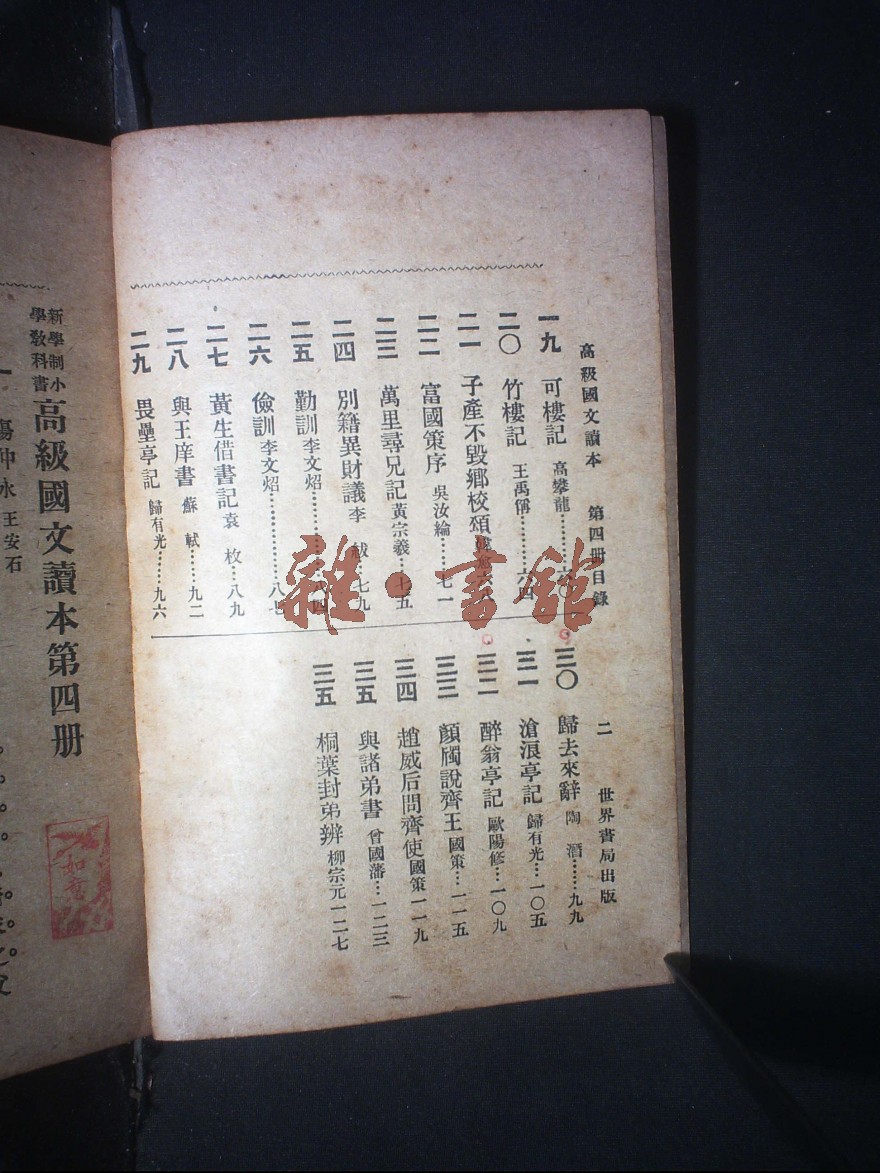 高級國文讀本 第四册目錄 二 世界書局出版
一九 可樓記 高攀龍………六〇
二〇 竹樓記 王禹偁………六四
二一 子產不毀鄉校頌 韓愈
二二 富國策序 吳汝綸……七一
二三 萬里尋兄記 黃宗羲…七五
二四 別籍異財議 李紱…七九
二五 勤訓 李文炤………八四
二六 儉訓 李文炤………八七
二七 黃生借書記 袁枚…八九
二八 與王庠書 蘇軾……九二
二九 畏壘亭記 歸有光……九六
三〇 歸去來辭 陶潛……九九
三一 滄浪亭記 歸有光…一〇五
三二 醉翁亭記 歐陽修…一〇九
三三 顏斶說齊王 國策…一一五
三四 趙威后問齊使 國策一一九
三五 與諸弟書 曾國藩…一二三
三五 桐葉封弟辨 柳宗元一二七
雜·書館
新學制小學教科書 高級國文讀本第四册
一 傷仲永 王安石
如意